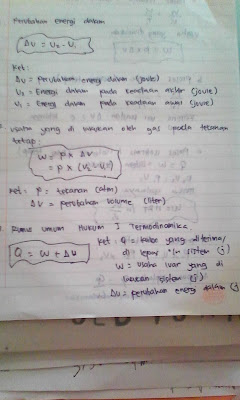 Perubahan energi dalam
ΔU = U₂ - U₁
ket:
ΔU = perubahan energy dalam (joule)
U₂ = Energi dalam pada keadaan akhir (joule)
U₁ = Energi dalam pada keadaan awal (joule)
usaha yang di lakukan oleh gas pada tekanan
tetap:
W = P x ΔV
= P x (V₂ - V₁)
ket: P = tekanan (atm)
ΔV = perubahan volume (liter)
Rumus umum Hukum I Termodinamika
Q = W + ΔU
ket: Q = kalor yang diterima/
di lepas sistem (j)
W = usaha luar yang di
lakukan sistem (j)
ΔU = perubahan energy dalam (j)